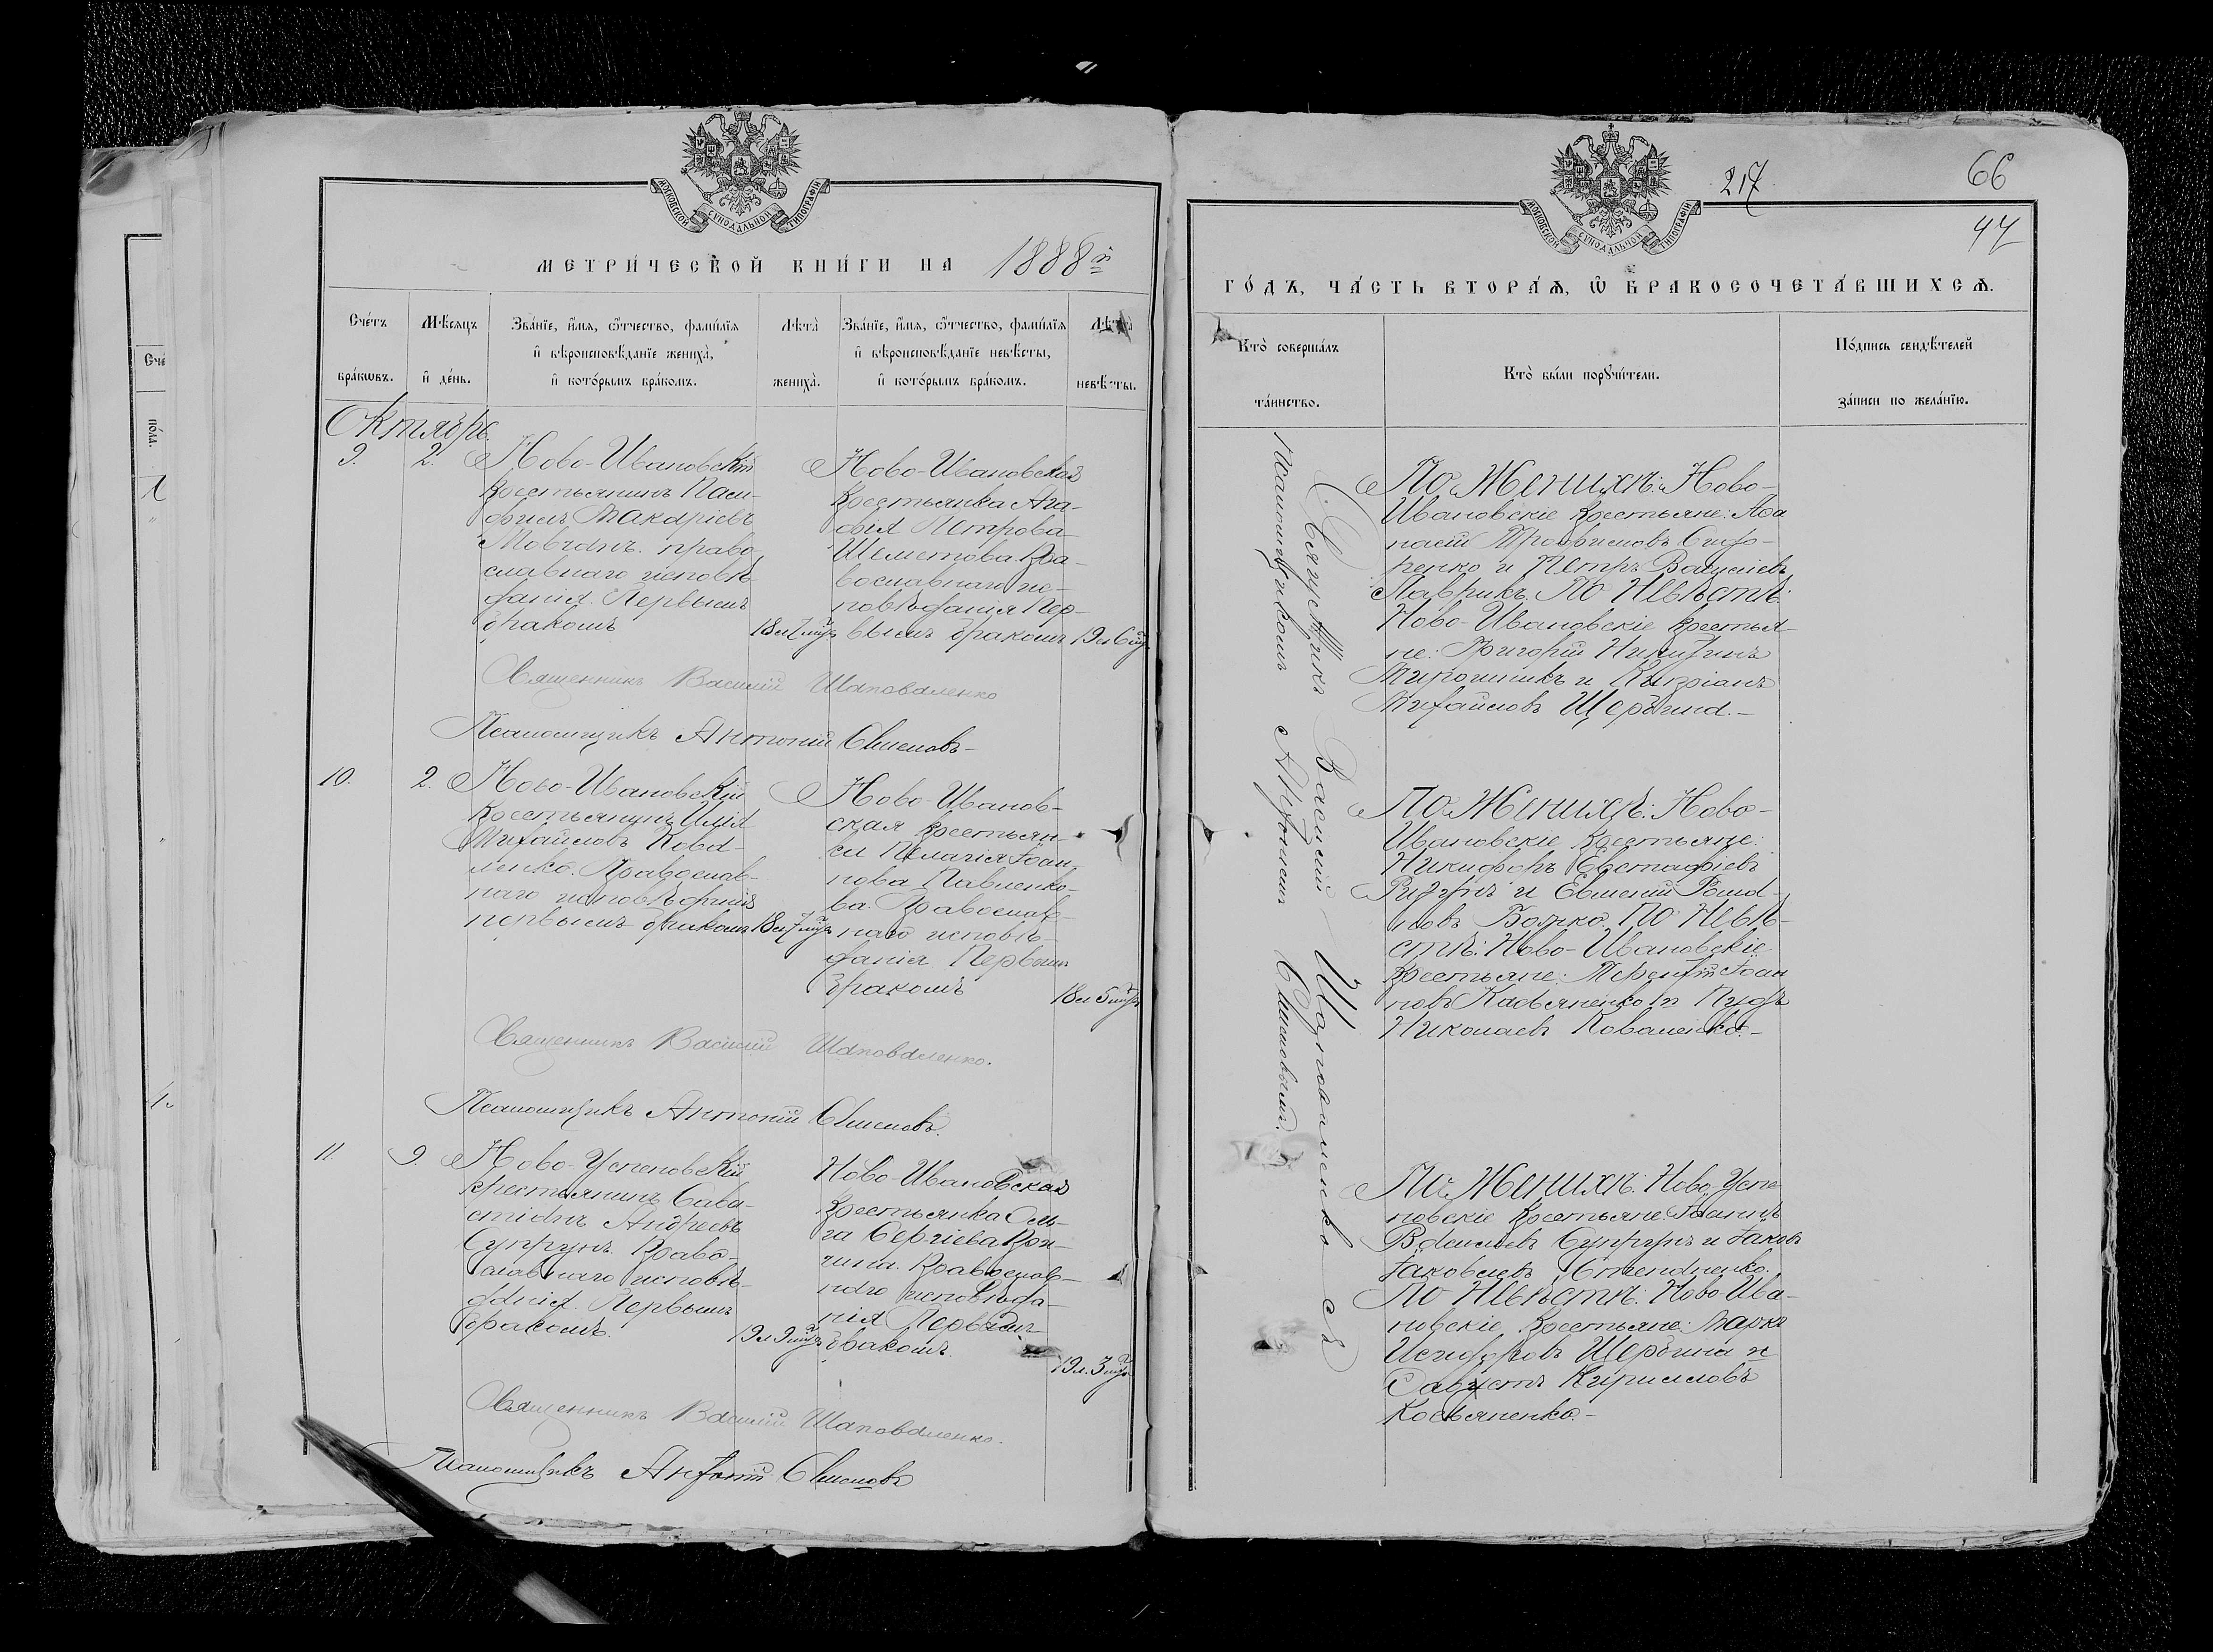 МОСКОВСКОЙ СѴНОДАЛЬНОЙ ТИПОГРАФІИ
МЕТРИ́ЧЕСКОЙ КНИ́ГИ НА 1888й
Сче́тъ бра́ковъ.
Мѣ́сяцъ и҆ де́нь.
Зва́нїе, и҆́мѧ, ѻ҆́тчество, фами́лїѧ и҆ вѣроисповѣ́данїе жениха̀, и҆ кото́рымъ бра́комъ.
Лѣта̀ жениха̀.
Зва́нїе, и҆́мѧ, ѻ҆́тчество, фами́лїѧ и҆ вѣроисповѣ́данїе невѣ́сты, и҆ кото́рымъ бра́комъ.
Лѣта̀ невѣ́сты.
Октябрь
9. 2.
Ново-Ивановскій
крестьянинъ Паси-
филъ Макаріевъ
Мовчанъ. право-
славнаго исповѣ-
данія. Первымъ
бракомъ
18 л 7 мцъ
Ново-Ивановская
крестьянка Ага-
фія Петрова
Шеметова. Пра-
вославнаго ис-
повѣданія Пер-
вымъ бракомъ
19 л 6 мц
Священникъ Василій Шаповаленко
Псаломщикъ Антоній Симоновъ
10. 2.
Ново-Ивановскій
крестьянинъ Илія
Михайловъ Кова-
ленко. Православ-
наго исповѣданія
первымъ бракомъ
18 л 7 мцъ
Ново-Иванов-
ская крестьян-
ка Пелагія Іоан-
нова Павленко-
ва. Православ-
наго исповѣ-
данія. Первымъ
бракомъ
18 л 5 мцъ
Священникъ Василій Шаповаленко.
Псаломщикъ Антоній Симоновъ.
11. 9.
Ново-Успеновскій
крестьянинъ Сава-
стіанъ Андреевъ
Супрунъ. Право-
славнаго исповѣ-
данія. Первымъ
бракомъ.
19 л 9 мцъ
Ново-Ивановская
крестьянка Оль-
га Сергіева
Православ-
наго исповѣда-
нія Первымъ
бракомъ.
19 л. 3 мцъ
Священникъ Василій Шаповаленко.
Псаломщикъ Антоній Симоновъ
МОСКОВСКОЙ СѴНОДАЛЬНОЙ ТИПОГРАФІИ
217
66
47
ГО́ДЪ, ЧА́СТЬ ВТОРА́Ѧ, Ѡ҆ БРАКОСОЧЕТА́ВШИХСѦ.
Кто̀ соверша́лъ та́инство.
Кто̀ бы́ли порꙋчи́тели.
По́дпись свидѣ́телей за́писи по жела́нїю.
Священникъ Василій Шаповаленко съ
псаломщикомъ Антоніемъ Симоновымъ.
По Женихѣ: Ново-
Ивановскіе крестьяне: Афа
насій Трофимовъ Сидо-
ренко и Петръ Василіевъ
Лаврикъ. По Невѣстѣ:
Ново-Ивановскіе крестья-
не: Григорій Никитинъ
Мирошникъ и Кипріанъ
Михайловъ Щербина.-
По Женихѣ: Ново-
Ивановскіе крестьяне:
Никифоръ Евстафіевъ
и Евменій
Божко. По Невѣ-
стѣ: Ново-Ивановскіе
крестьяне: Терентій Іоан
новъ Касьяненко и
Николаевъ Коваленко.-
По Женихѣ: Ново-Успе
новскіе крестьяне: Іоаннъ
Василіевъ Супрунъ и Іаковъ
Іаковлевъ Степаненко.
По Невѣстѣ: Ново-Ива-
новскіе крестьяне: Маркъ
Исидоровъ Щербина и
Кирилловъ
Косьяненко.-